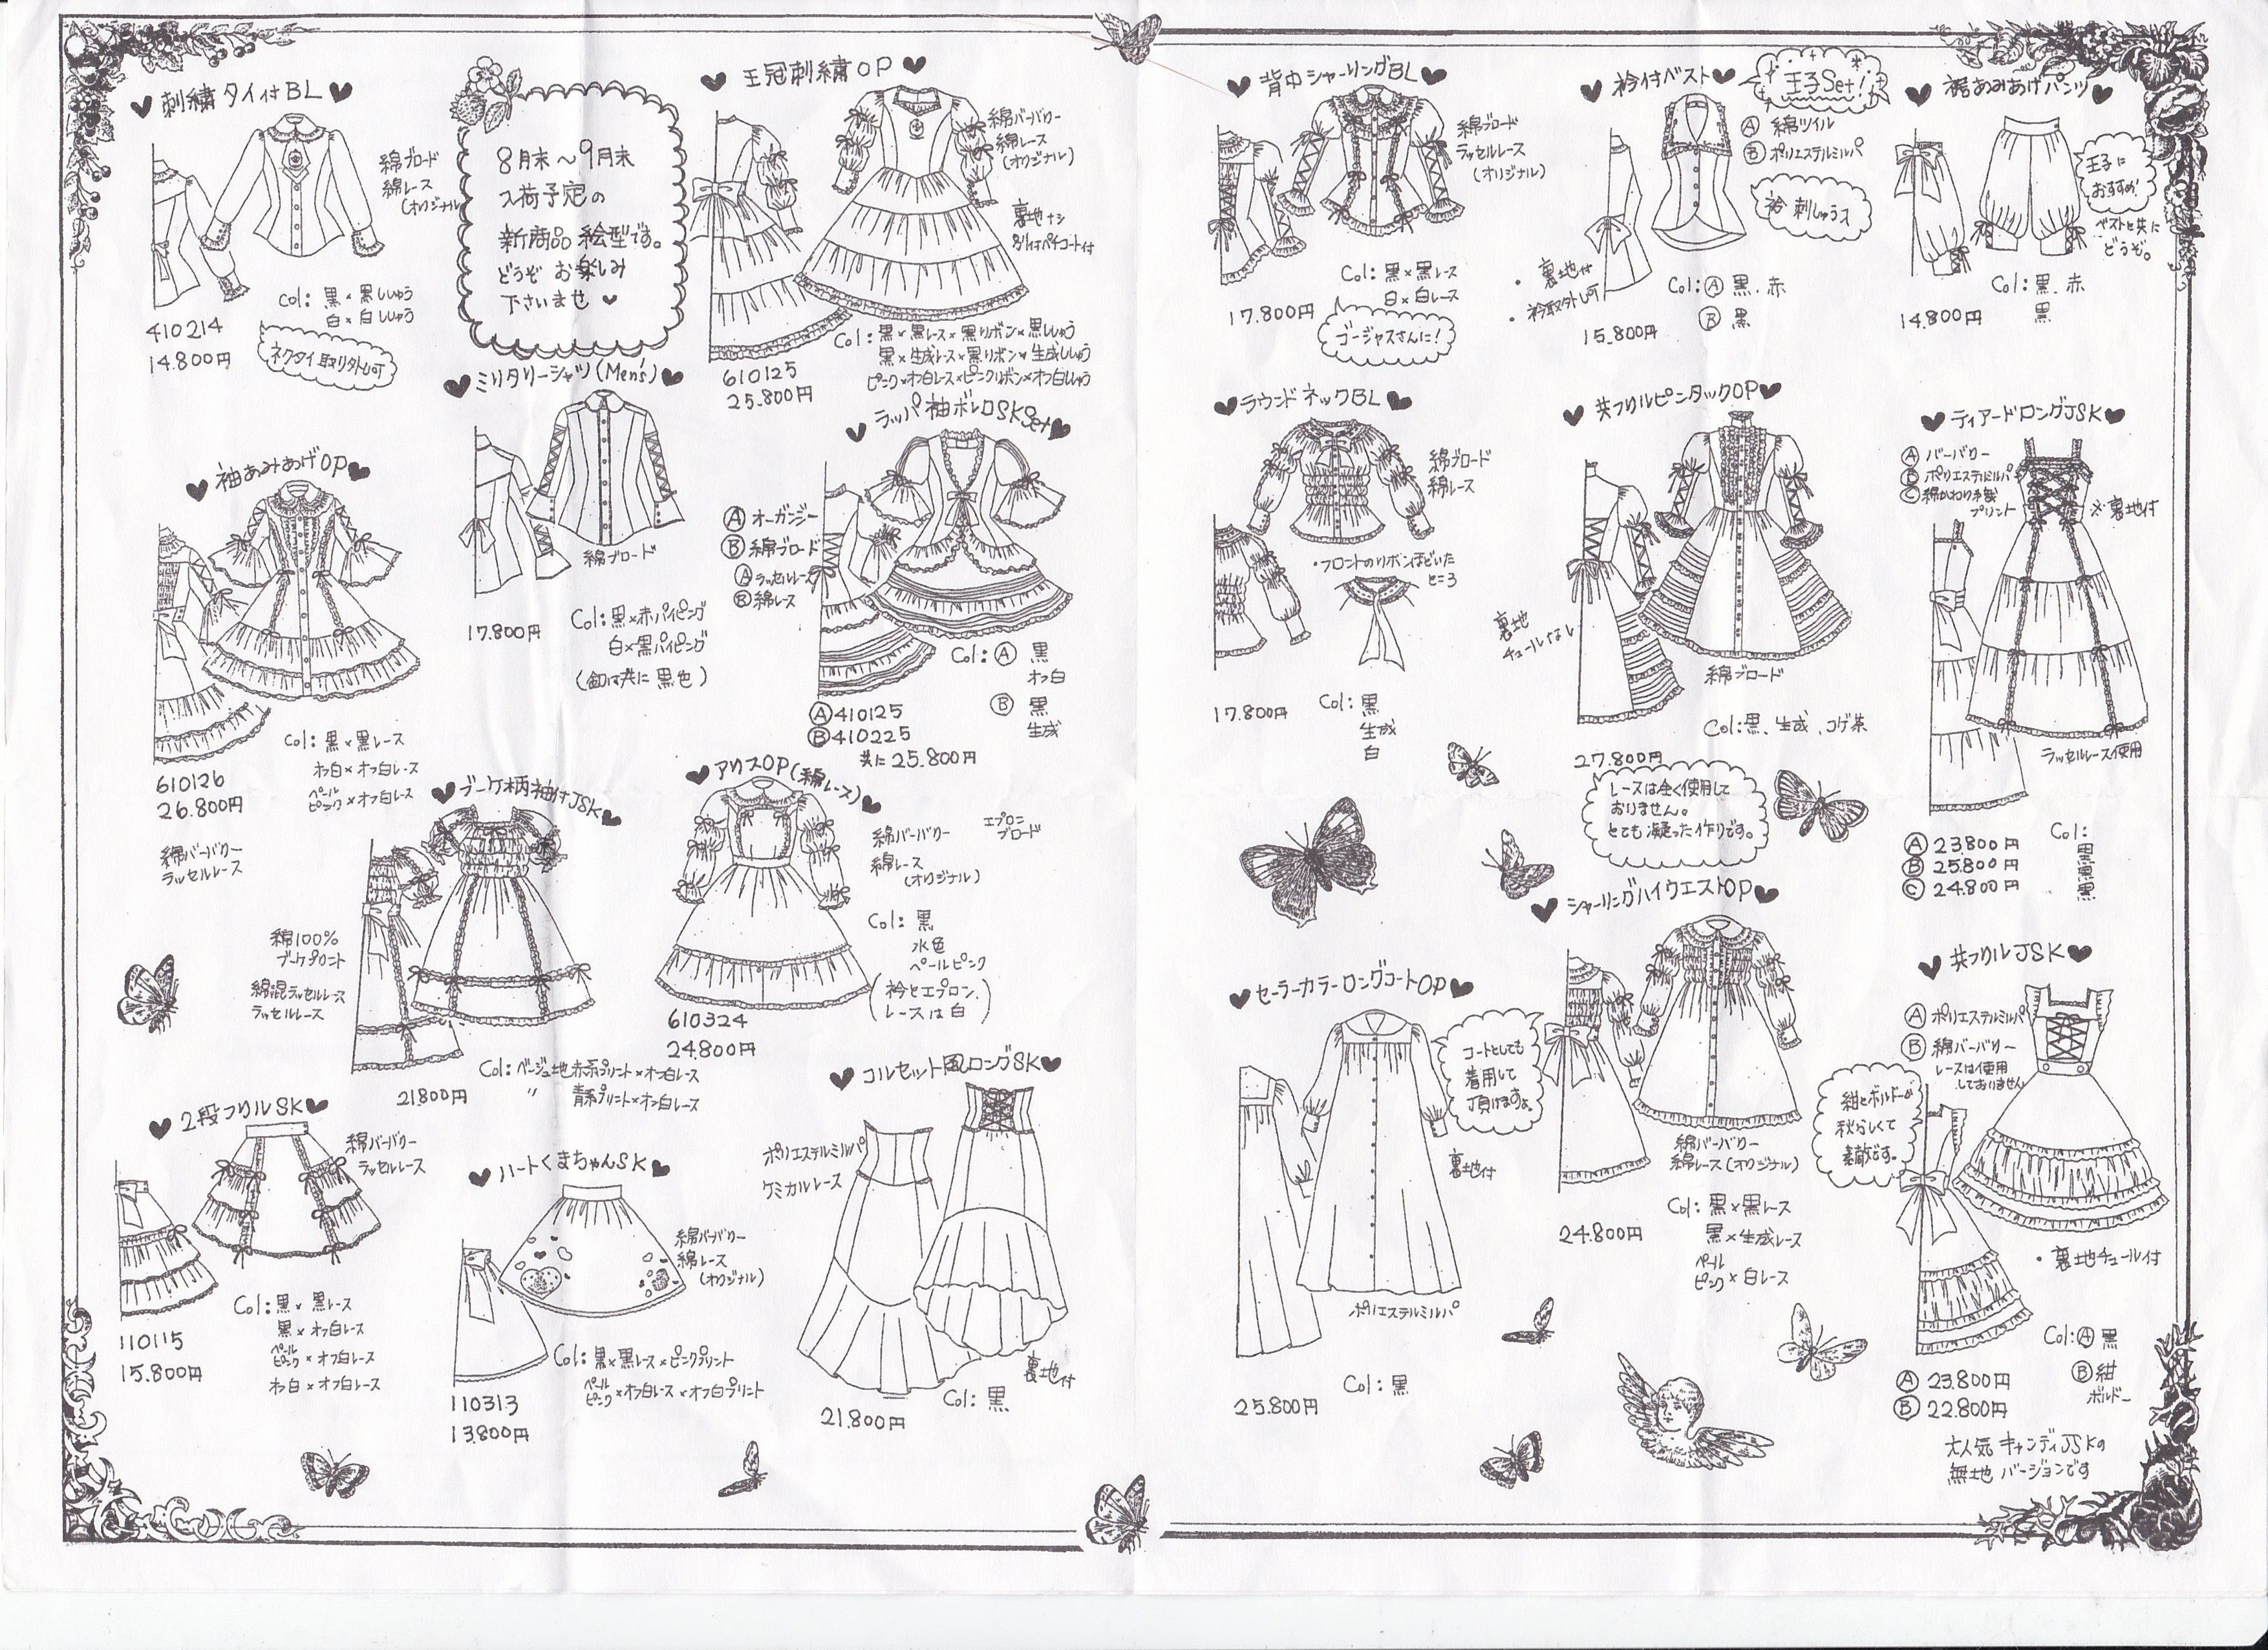 刺繍タイ付BL
綿ブロード
綿レース
(オリジナル)
Col: 黒×黒ししゅう
白×白ししゅう
410214
14.800円
ネクタイ取り外し可
8月末～9月末
入荷予定の
新商品絵型です。
どうぞ お楽しみ
下さいませ♥
王冠刺繍OP
綿バーバリー
綿レース
(オリジナル)
裏地ナシ
別付ペチコート付
Col: 黒×黒レース×黒リボン×黒ししゅう
黒×生成レース×黒リボン×生成ししゅう
ピンク×オフ白レース×ピンクリボン×オフ白ししゅう
610125
25.800円
袖あみあげOP
Col: 黒×黒レース
オフ白×オフ白レース
ペール
ピンク×オフ白レース
610126
26.800円
綿バーバリー
ラッセルレース
ミリタリーシャツ(Men's)
綿ブロード
17.800円
Col: 黒×赤パイピング
白×黒パイピング
(釦は共に黒色)
ラッパ袖ボレロSKSet
Ⓐ オーガンジー
Ⓑ 綿ブロード
Ⓐ ラッセルレース
Ⓑ 綿レース
Col: Ⓐ 黒
オフ白
Ⓑ 黒
生成
Ⓐ410125
Ⓑ410225
共に25.800円
ブーケ柄袖付JSK
綿100%
ブーケプリント
綿混ラッセルレース
ラッセルレース
21800円
Col: ベージュ地赤系プリント×オフ白レース
〃 青系プリント×オフ白レース
アリスOP(綿レース)
綿バーバリー
エプロン
ブロード
綿レース
(オリジナル)
Col: 黒
水色
ペールピンク
(衿とエプロン、
レースは白)
610324
24.800円
2段フリルSK
綿バーバリー
ラッセルレース
Col: 黒×黒レース
黒×オフ白レース
ペール
ピンク×オフ白レース
オフ白×オフ白レース
110115
15.800円
ハートくまちゃんSK
綿バーバリー
綿レース
(オリジナル)
Col: 黒×黒レース×ピンクプリント
ペール
ピンク×オフ白レース×オフ白プリント
110313
13.800円
コルセット風ロングSK
ポリエステルミルパ
ケミカルレース
裏地付
Col: 黒
21.800円
背中シャーリングBL
綿ブロード
ラッセルレース
(オリジナル)
Col: 黒×黒レース
白×白レース
17.800円
ゴージャスさんに!
衿付ベスト
王子Set!
Ⓐ 綿ツイル
Ⓑ ポリエステルミルパ
衿刺しゅうス
・裏地付
・衿取外し可
Col: Ⓐ 黒、赤
Ⓑ 黒
15.800円
裾あみあげパンツ
王子に
おすすめ!
ベストと共に
どうぞ。
Col: 黒、赤
黒
14.800円
ラウンドネックBL
綿ブロード
綿レース
・フロントのリボンほどいた
ところ
17.800円
Col: 黒
生成
白
共フリルピンタックOP
裏地
チュールなし
綿ブロード
Col: 黒、生成、コゲ茶
27.800円
レースは全く使用して
おりません。
とても凝った作りです。
ティアードロングJSK
Ⓐ バーバリー
Ⓑ ポリエステルミルパ
Ⓒ 綿かわり手製
プリント
※裏地付
ラッセルレース使用
Ⓐ 23800円
Ⓑ 25.800円
Ⓒ 24.800円
Col:
黒
黒
黒
セーラーカラーロングコートOP
コートとしても
着用して
頂けますよ。
裏地付
ポリエステルミルパ
25.800円
Col: 黒
シャーリングハイウエストOP
綿バーバリー
綿レース(オリジナル)
24.800円
Col: 黒×黒レース
黒×生成レース
ペール
ピンク×白レース
共フリルJSK
Ⓐ ポリエステルミルパ
Ⓑ 綿バーバリー
レースは使用
しておりません
紺とボルドーが
秋らしくて
素敵です。
・裏地チュール付
Col: Ⓐ 黒
Ⓑ 紺
ボルドー
Ⓐ 23.800円
Ⓑ 22.800円
大人気キャンディJSKの
無地バージョンです